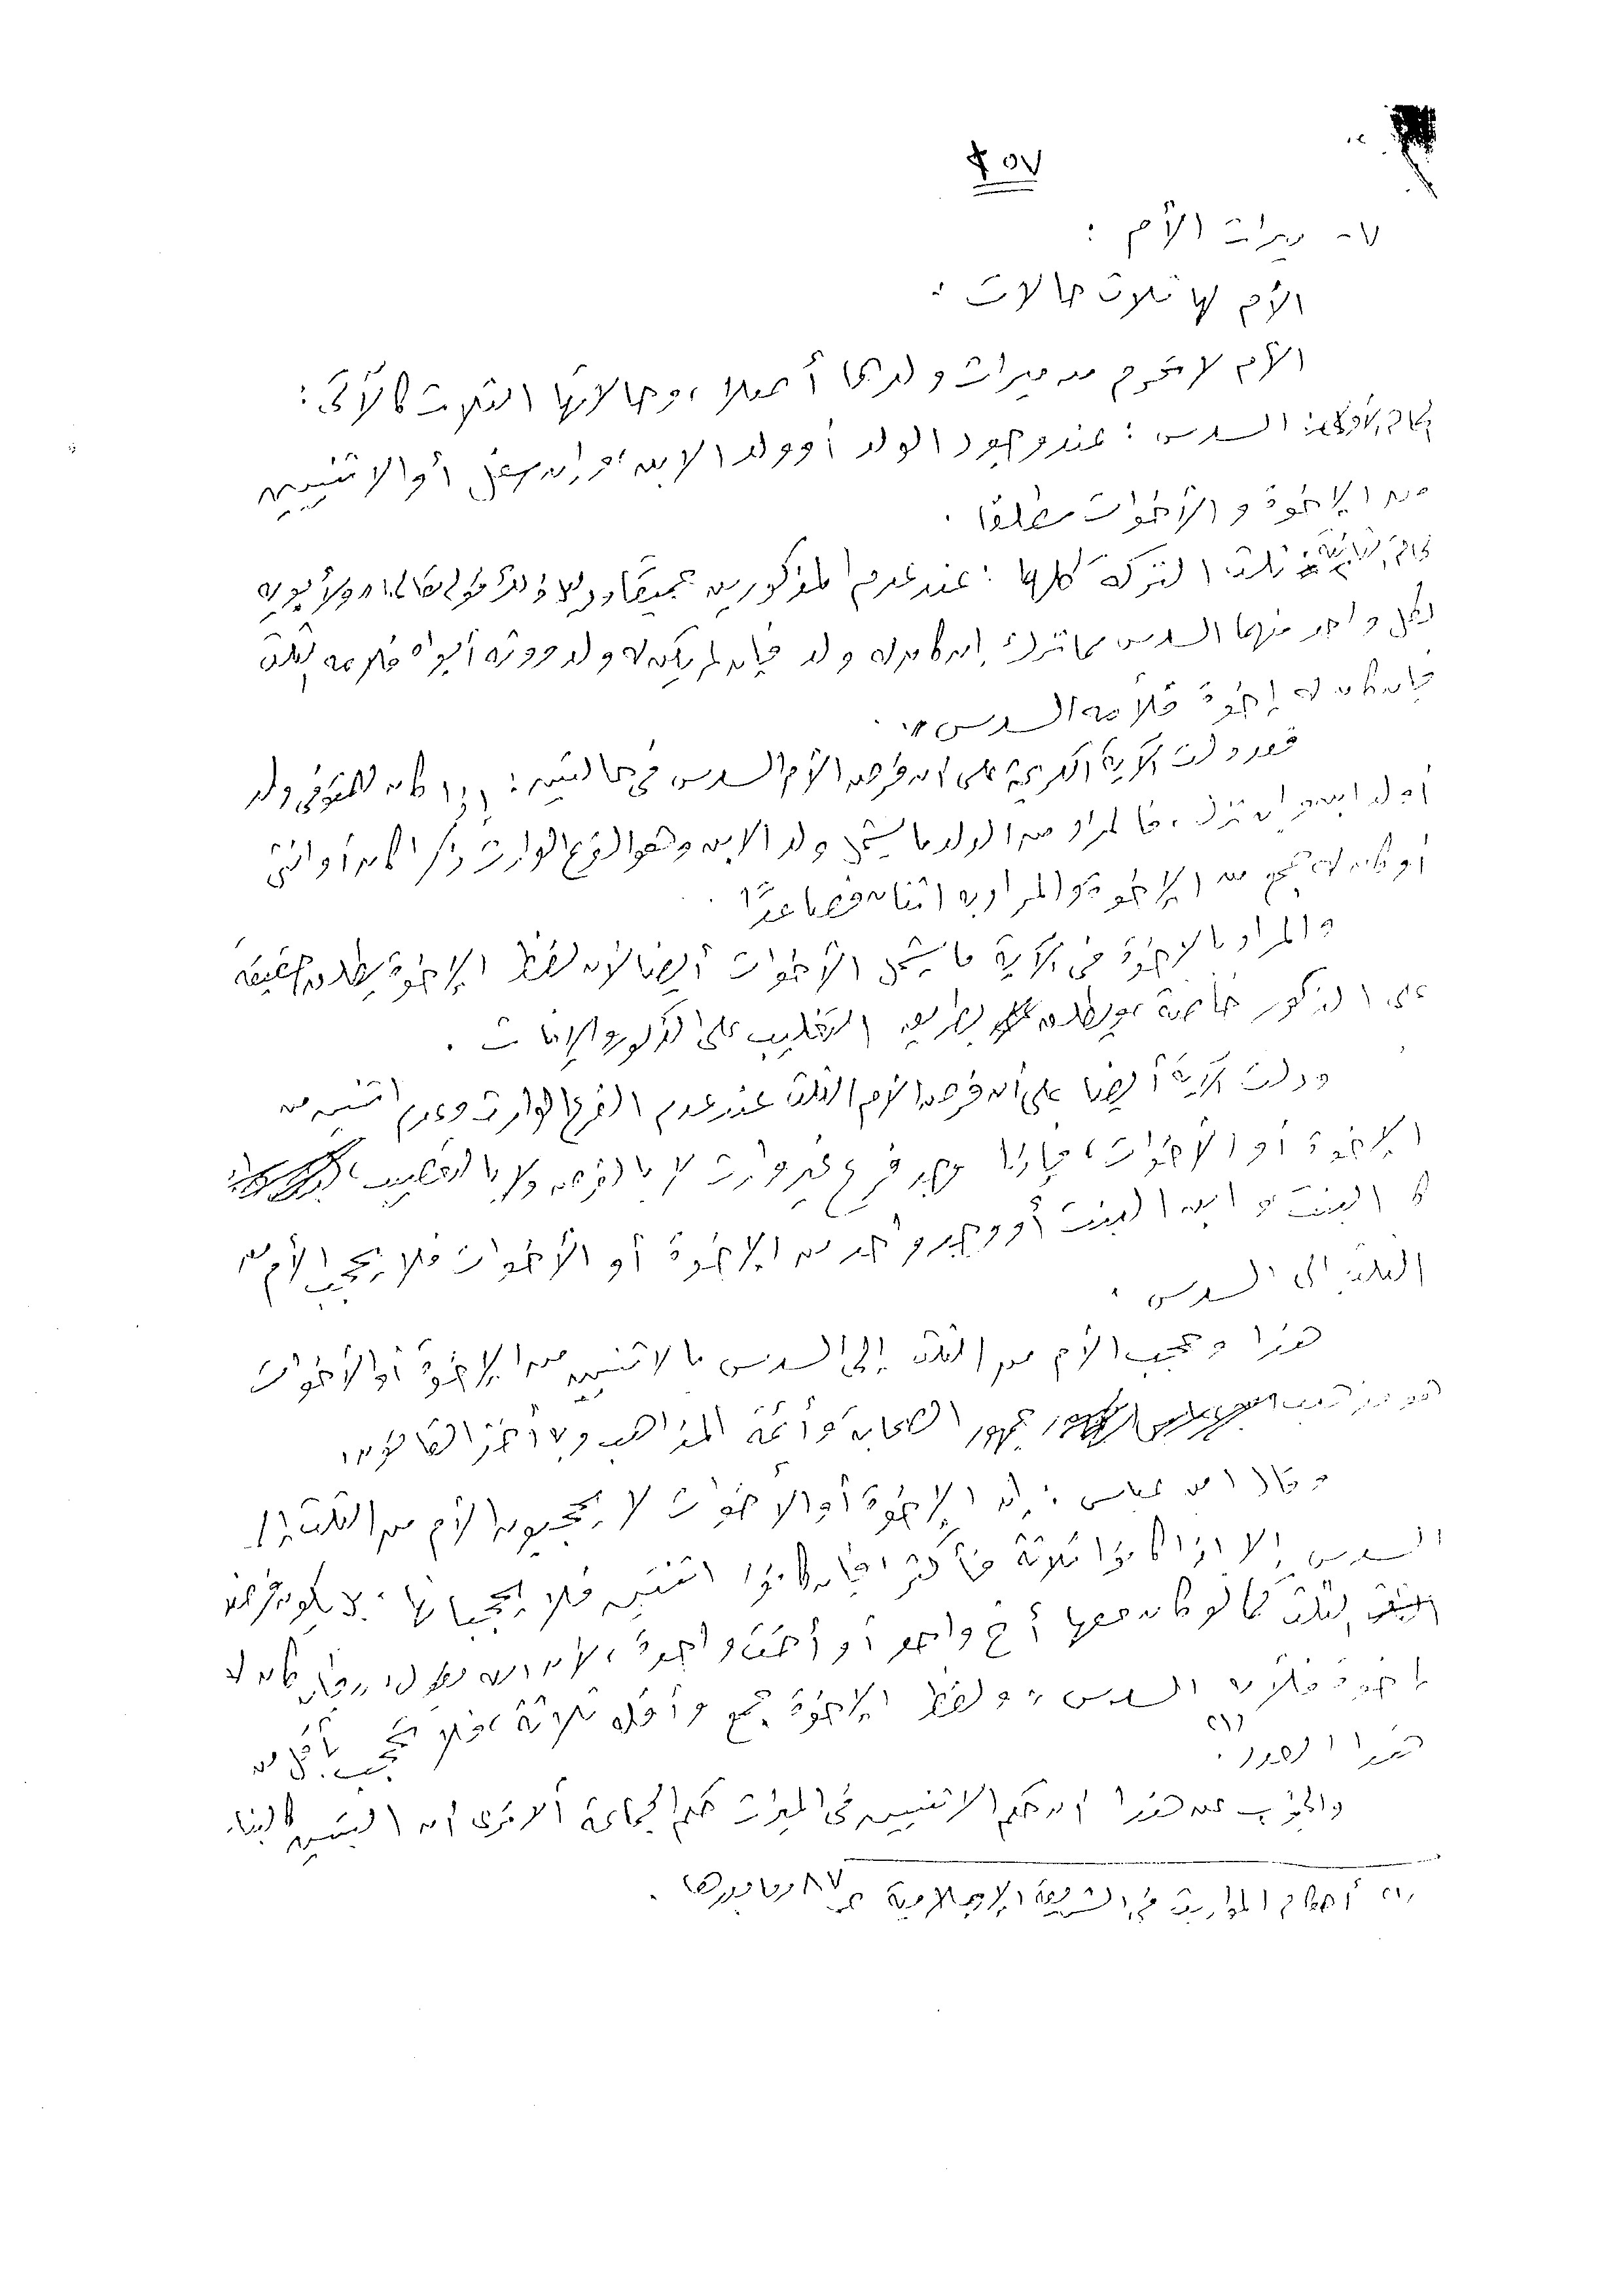 ٤٥٧
٧- ميراث الأم :
الأم لها ثلاث حالات :
الأم لا تحرم من ميراث ولدها أصلا ، وحالاتها الثلاث كالآتى :
الحالة الأولى : السدس : عند وجود الولد أو ولد الابن وإن سفل أو الاثنين
من الإخوة والأخوات مطلقا .
الحالة الثانية : ثلث التركة كلها : عند عدم المذكورين جميعًا ودليل ذلك قوله تعالى " ولأبويه
لكل واحد منهما السدس مما ترك إن كان له ولد فإن لم يكن له ولد وورثه أبواه فلأمه الثلث
فإن كان له إخوة فلأمه السدس " .
فقد دلت الآية الكريمة على أن فرض الأم السدس فى حالتين : إذا كان للمتوفى ولد
أو ولد ابن وإن نزل ، فالمراد من الولد ما يشمل ولد الابن وهو الفرع الوارث ذكرا كان أو أنثى
أو كان له جمع من الإخوة والمراد به اثنان فصاعدًا .
والمراد بالإخوة فى الآية ما يشمل الأخوات أيضا لأن لفظ الإخوة يطلق حقيقة
على الذكور خاصة ، ويطلق بطريق التغليب على الذكور والإناث .
ودلت الآية أيضا على أن فرض الأم الثلث عند عدم الفرع الوارث وعدم اثنين من
الإخوة أو الأخوات ، فإذا وجد فرع غير وارث لا بالفرض ولا بالتعصيب ،
كـ البنت و ابن البنت أو وجد واحد من الإخوة أو الأخوات فلا يحجب الأم من
الثلث إلى السدس .
هذا وحجب الأم من الثلث إلى السدس بالاثنين من الإخوة أو الأخوات
هو مذهب جمهور الصحابة وأئمة المذاهب وبه أخذ القانون .
وقال ابن عباس : إن الإخوة أو الأخوات لا يحجبون الأم من الثلث إلى
السدس إلا إذا كانوا ثلاثة فأكثر فإن كانوا اثنين فلا يحجبانها ، بل يكون فرضها
الثلث كما لو كان معها أخ واحد أو أخت واحدة ، لأن الله يقول " فإن كان له
إخوة فلأمه السدس " ولفظ الإخوة جمع وأقله ثلاثة ، فلا تحجب بأقل من
هذا العدد (١) .
والجواب عن هذا أن حكم الاثنين فى الميراث حكم الجماعة ألا ترى أن البنتين كالبنات
(١) أحكام المواريث فى الشريعة الإسلامية ص ٨٧ وما بعدها .